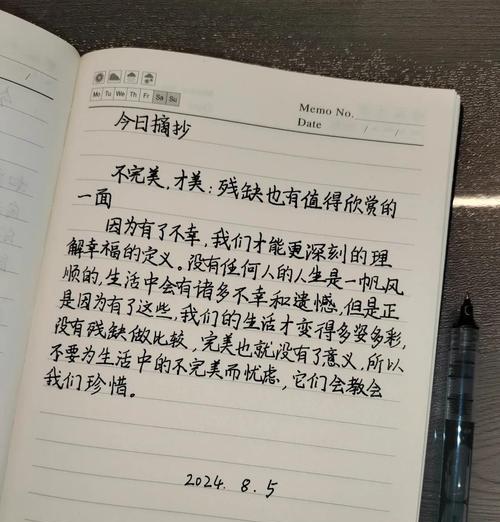 Mo Tu We Th Fr Sa Su
Memo No.
Date / /
今日摘抄
不完美，才美；残缺也有值得欣赏的
一面
因为有了不幸，我们才能更深刻的理
解幸福的定义。没有任何人的人生是一帆风
顺的，生活中会有诸多不幸和遗憾，但是正
是因为有了这些，我们的生活才变得多姿多彩，
没有残缺做比较，完美也就没有了意义，所以
不要为生活中的不完美而忧虑，它们会教会
我们珍惜。
2024. 8. 5